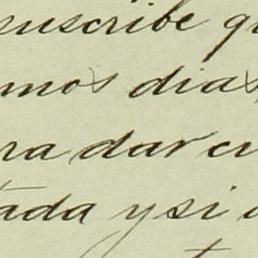 suscribe q
mos dias
ra dar cu
tada y si